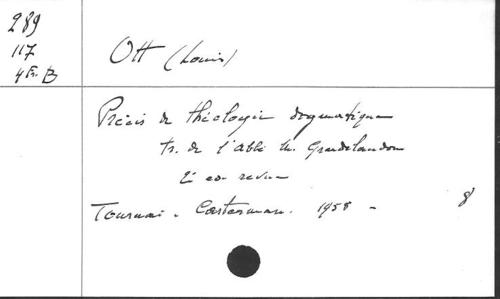 289
117
4 Fr. B
Ott (Louis)
Précis de théologie dogmatique
tr. de l'abbé M. Grandclaudon
2e éd revue
Tournai - Casterman. 1958 -
8